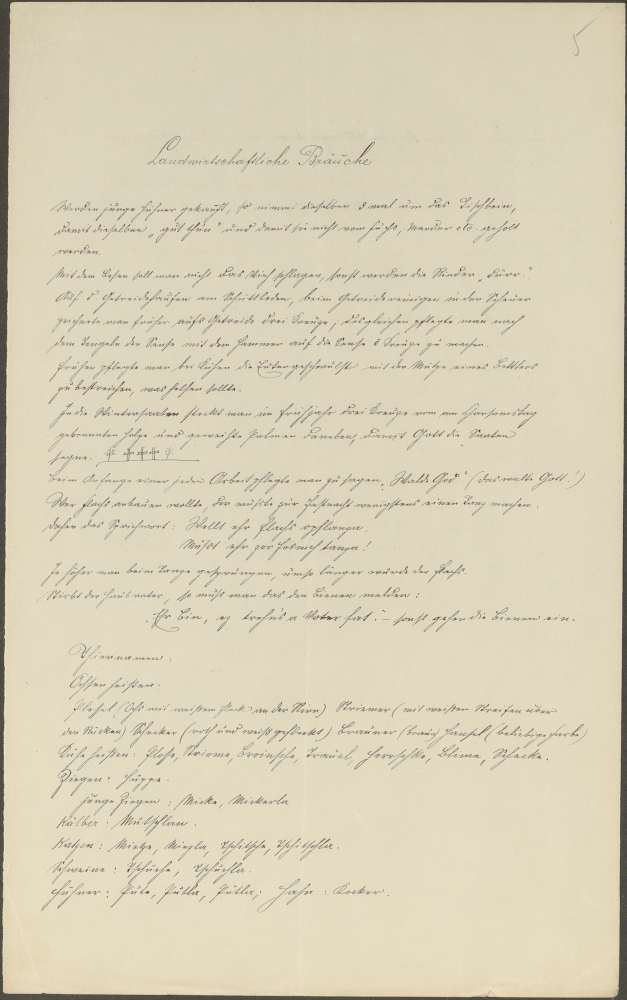 5
Landwirtschaftliche Bräuche
Werden junge Hühner gekauft, so nimmt dieselben 3 mal um das Tischbein,
damit dieselben „gut thun" und damit sie nicht vom Fuchs, Marder etc. geholt
werden.
Mit dem Besen soll man nicht das Vieh schlagen, sonst werden die Rinder „dürr".
Auf d. Getreidehaufen am Schüttboden, beim Getreidereinigen in der Scheuer
zeichnete man früher aufs Getreide drei Kreuze; desgleichen pflegte man nach
dem Dengeln der Sense mit dem Hammer auf die Sense 3 Kreuze zu machen.
Früher pflegte man bei Kühen die Eutergeschwulst mit der Mütze eines Bettlers
zu bestreichen, was helfen sollte.
In die Wintersaaten steckt man im Frühjahr drei Kreuze vom am Charsamstag
gebrannten Holze und geweihte Palmen daneben, damit Gott die Saaten
segne.
Beim Anfange einer jeden Arbeit pflegte man zu sagen „Walde God" (das walte Gott!)
Wer Flachs anbauen wollte, der mußte zur Fastnacht wenigstens einen Tanz machen.
daher das Sprichwort: Wellt ehr Flachs
Mußt ehr zor Fosnich tanza!
Je höher man beim Tanze gesprungen, umso länger wurde der Flachs.
Stirbt der Hausvater, so muß man das den Bienen melden:
„Ehr Bin, a Voter hat." – sonst gehen die Bienen ein.
Thiernamen.
Ochsen heißen:
(Ochs mit weißem Fleck an der Stirn) Striemer (mit weißen Streifen über
den Rücken) Schecker (roth und weiß gefleckt) Brauner Hansel, (beliebige Farbe)
Kühe heißen: Bloße, Strieme, Brainsche, Braul, Blime, Schecke.
Ziegen: Huppe.
junge Ziegen: Micke, Mickerla
Kälber: Mutschlan.
Katzen: Mietze, Miezla, Tschitsche, Tschitschla.
Schweine: Tschusche, Tschuschla.
Hühner: Pute, Putta, Putla; Hahn: Kocker.